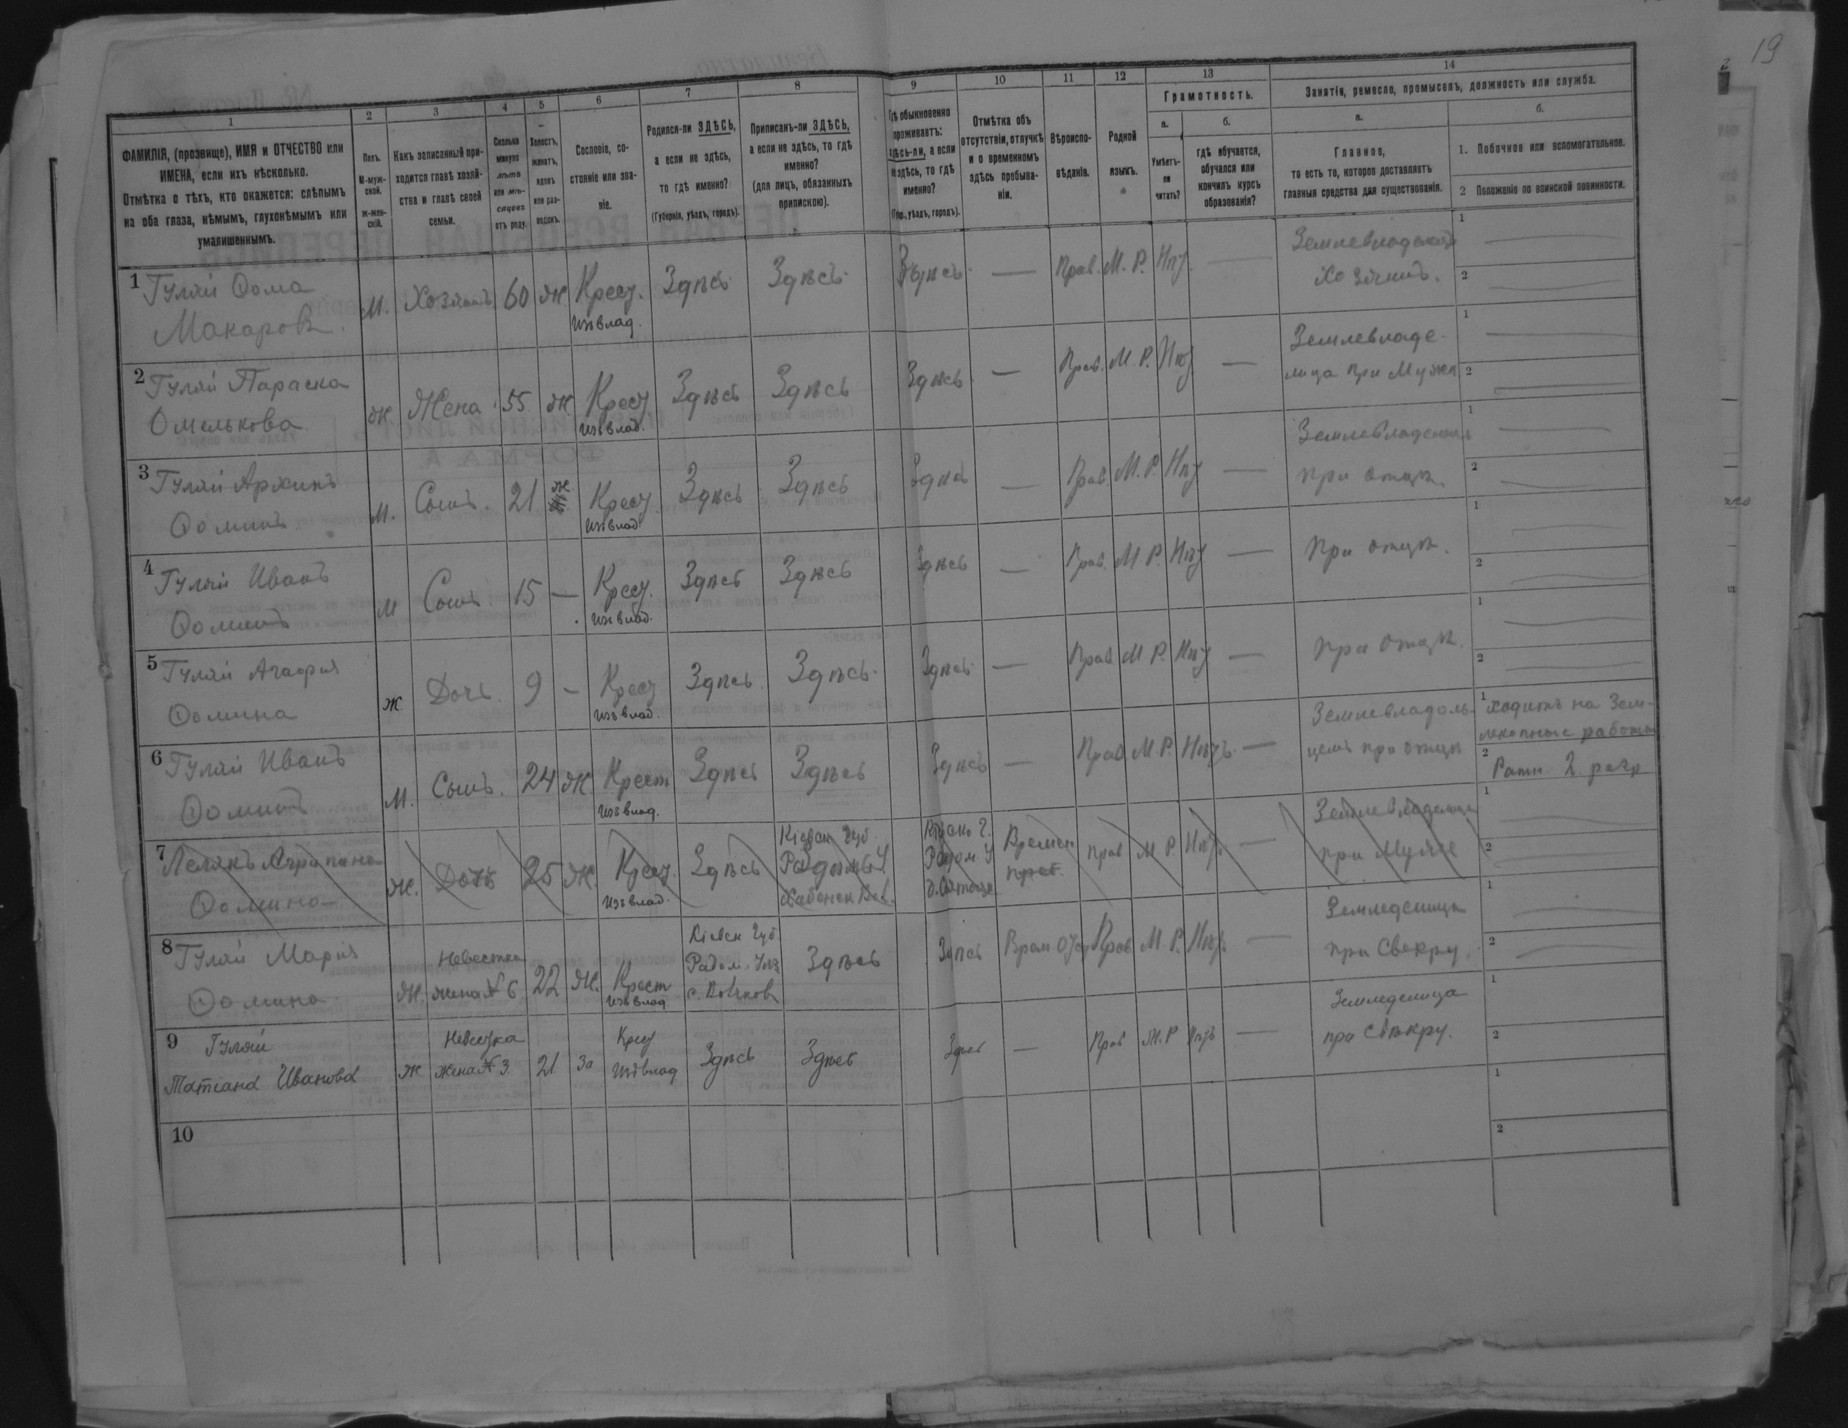 19
1
2
3
4
5
6
7
8
9
10
11
12
13
14
ФАМИЛІЯ, (прозвище), ИМЯ и ОТЧЕСТВО или
ИМЕНА, если ихъ нѣсколько.
Отмѣтка о тѣхъ, кто окажется: слѣпымъ
на оба глаза, нѣмымъ, глухонѣмымъ или
умалишеннымъ.
Полъ.
М-муж-
ской.
Ж-жен-
скій.
Какъ записанный при-
ходится главѣ хозяй-
ства и главѣ своей
семьи.
Сколько
минуло
лѣтъ
или мѣ-
сяцевъ
отъ роду.
Холостъ,
женатъ,
вдовъ
или раз-
веденъ.
Сословіе, со-
стояніе или зва-
ніе.
Родился-ли ЗДѢСЬ,
а если не здѣсь,
то гдѣ именно?
(Губернія, уѣздъ, городъ).
Приписанъ-ли ЗДѢСЬ,
а если не здѣсь, то гдѣ
именно?
(для лицъ, обязанныхъ
припискою).
Гдѣ обыкновенно
проживаетъ:
здѣсь-ли, а если
не здѣсь, то гдѣ
именно?
(Губ., уѣздъ, городъ).
Отмѣтка объ
отсутствіи, отлучкѣ
и о временномъ
здѣсь пребыва-
ніи.
Вѣроиспо-
вѣданіе.
Родной
языкъ.
Грамотность.
а.
Умѣетъ-
ли
читать?
б.
гдѣ обучается,
обучался или
кончилъ курсъ
образованія?
Занятія, ремесло, промыселъ, должность или служба.
а.
Главное,
то есть то, которое доставляетъ
главныя средства для существованія.
б.
1. Побочное или вспомогательное.
2 Положеніе по воинской повинности.
1 Гуляй Ѳома
Макаровъ
М. Хозяинъ 60 Ж Крест.
изъ влад.
Здѣсь Здѣсь Здѣсь — Прав. М. Р. Нѣт —
Хозяинъ.
1
2
2 Гуляй Параска
Омелькова
Ж Жена 55 Ж Крест
изъ влад.
Здѣсь Здѣсь Здѣсь — Прав. М. Р. Нѣт —
Землевладе-
лица при Мужѣ
1
2
3 Гуляй Архипъ
Ѳоминъ
М. Сынъ. 21 Ж Крест
изъ влад.
Здѣсь Здѣсь Здѣсь — Прав М. Р. Нѣт —
при отцѣ.
1
2
4 Гуляй Иванъ
Ѳоминъ
М Сынъ. 15 — Крест.
изъ влад.
Здѣсь Здѣсь Здѣсь — Прав. М Р. Нѣт —
При отцѣ.
1
2
5 Гуляй Агафія
Ѳомина
Ж Дочь. 9 — Крест
изъ влад.
Здѣсь Здѣсь. Здѣсь — Прав М Р. Нѣт —
при отцѣ.
1
2
6 Гуляй Иванъ
Ѳоминъ
М. Сынъ. 24 Ж. Крест
изъ влад.
Здѣсь Здѣсь Здѣсь — Прав М Р. Нѣтъ. —
Землевладѣль-
цемъ при отцѣ
1 ходитъ на Зем-
лекопные работы
2 Ратн. 2 разр
7 Ѳомина
Ж. Дочь 25 Ж. Крест.
изъ влад.
Здѣсь
Кіевск. Губ.
Времен
преб.
Прав М Р. Нѣт. —
при Мужѣ
1
2
8 Гуляй Марія
Ѳомина
Ж. Невестка
жена № 6
22 Ж. Крест
изъ влад
Кіевск Губ
Радом. Уѣз
Здѣсь Здѣсь Прав М. Р. Нѣт. —
при Свекру.
1
2
9 Гуляй
Татіана Иванова
Ж Невестка
жена № 3.
21 За Крест
изъ влад
Здѣсь Здѣсь Здѣсь — Прав М. Р Нѣтъ —
Земледелица
при Свѣкру.
1
2
10
1
2